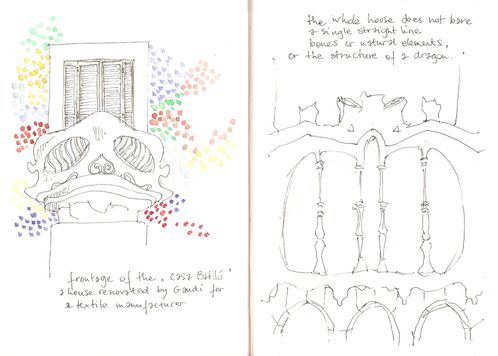 frontage of the „ casa Batiló "
a house renovated by Gaudí for
a textile manufacturer
the whole house does not bare
a single straight line
bones or natural elements,
or the structure of a dragon.